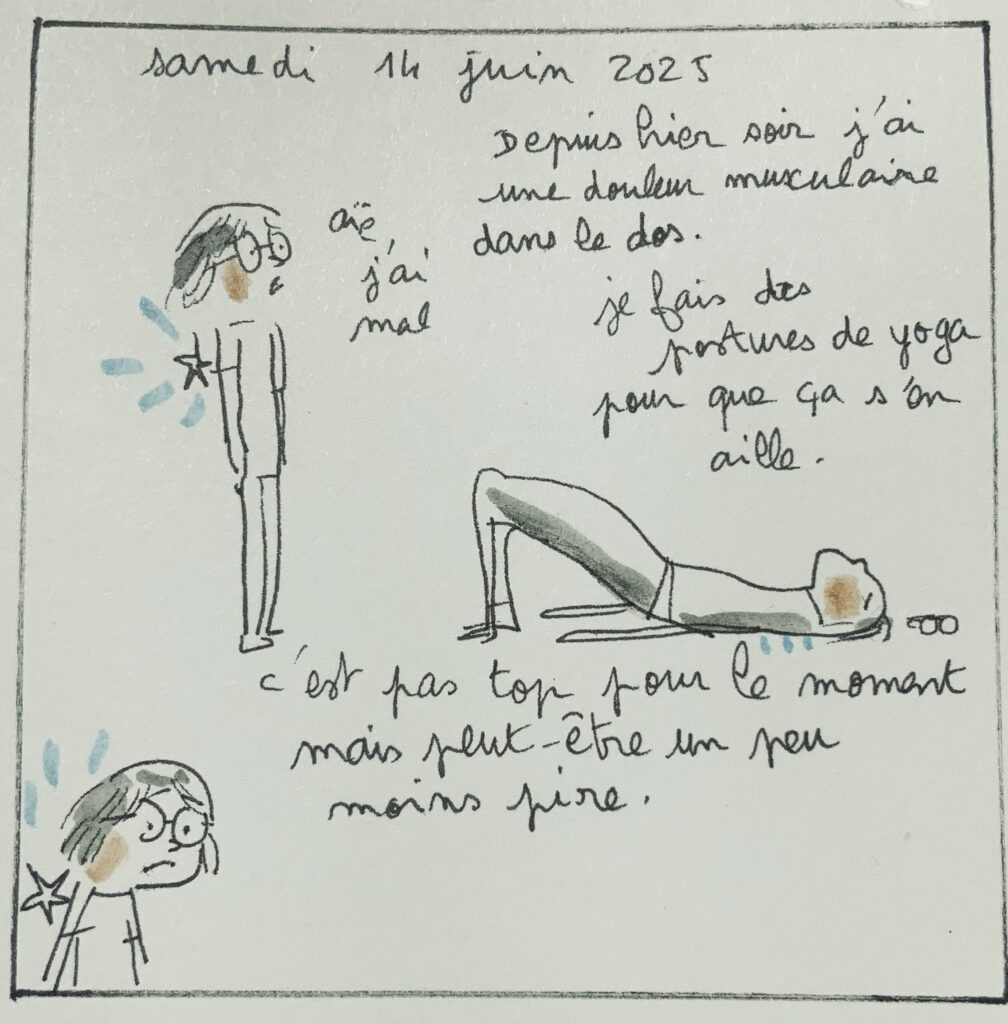 samedi 14 juin 2025
Depuis hier soir j'ai
une douleur musculaire
dans le dos.
aïe
j'ai
mal
je fais des
postures de yoga
pour que ça s'en
aille.
c'est pas top pour le moment
mais peut-être un peu
moins pire.